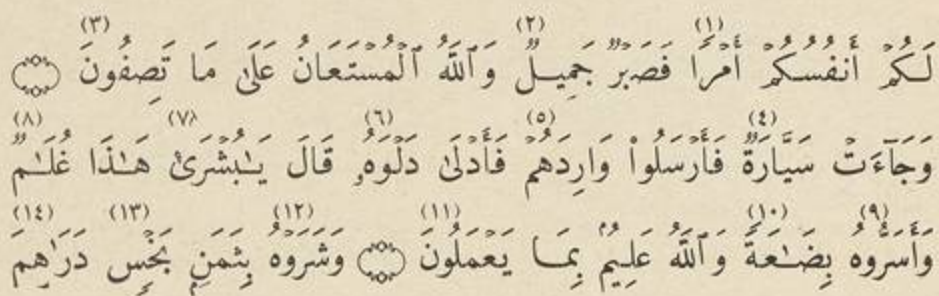 لَكُمْ أَنفُسُكُمْ أَمْرًا (١) فَصَبْرٌ جَمِيلٌ (٢) وَٱللَّهُ ٱلْمُسْتَعَانُ عَلَىٰ مَا تَصِفُونَ (٣)
وَجَآءَتْ سَيَّارَةٌ (٤) فَأَرْسَلُوا۟ وَارِدَهُمْ (٥) فَأَدْلَىٰ دَلْوَهُۥ (٦) قَالَ يَـٰبُشْرَىٰ (٧) هَـٰذَا غُلَـٰمٌ (٨)
وَأَسَرُّوهُ (٩) بِضَـٰعَةً (١٠) وَٱللَّهُ عَلِيمٌۢ بِمَا يَعْمَلُونَ (١١) وَشَرَوْهُ (١٢) بِثَمَنٍۭ بَخْسٍ (١٣) دَرَٰهِمَ (١٤)